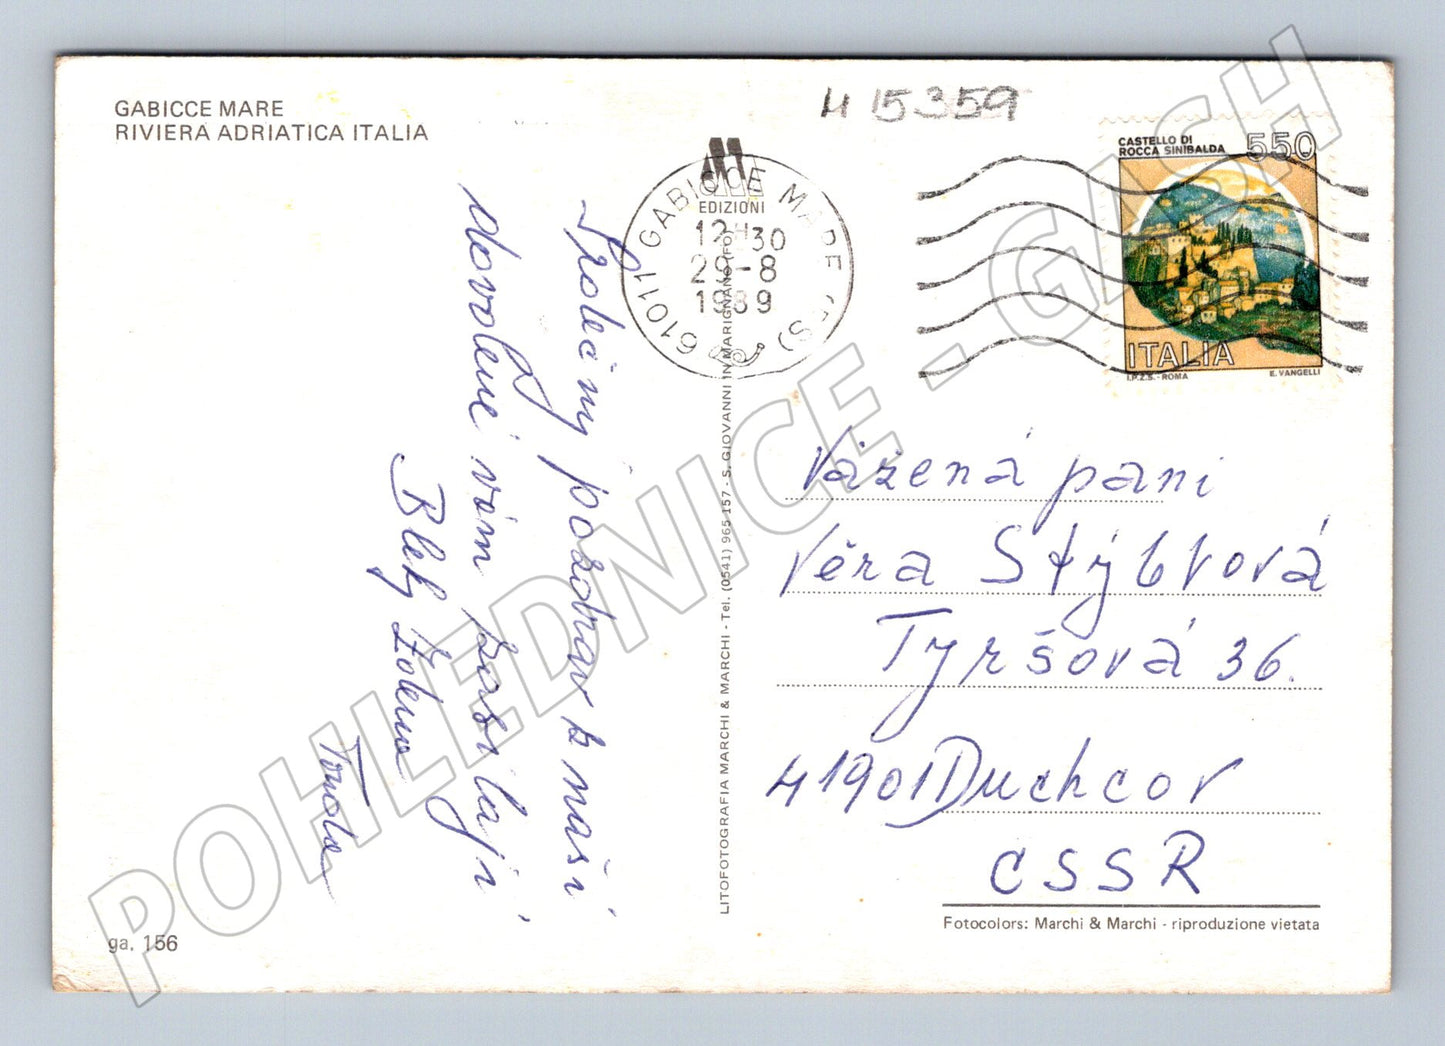 GABICCE MARE
RIVIERA ADRIATICA ITALIA
H 15359
EDIZIONI
61011 GABICCE MARE (PS)
12H-30
29-8
1989
CASTELLO DI
ROCCA SINIBALDA
550
ITALIA
I.P.Z.S. - ROMA
E. VANGELLI
Srdečný pozdrav z naší
dovolené vám posílají
Zdena
Tonda
LITOFOTOGRAFIA MARCHI & MARCHI - Tel. (0541) 965-157 - S. GIOVANNI IN MARIGNANO (FO)
Vážená paní
Věra Stýblová
Tyršová 36.
41901 Duchcov
ČSSR
Fotocolors: Marchi & Marchi - riproduzione vietata
ga. 156
POHLEDNICE - GASH